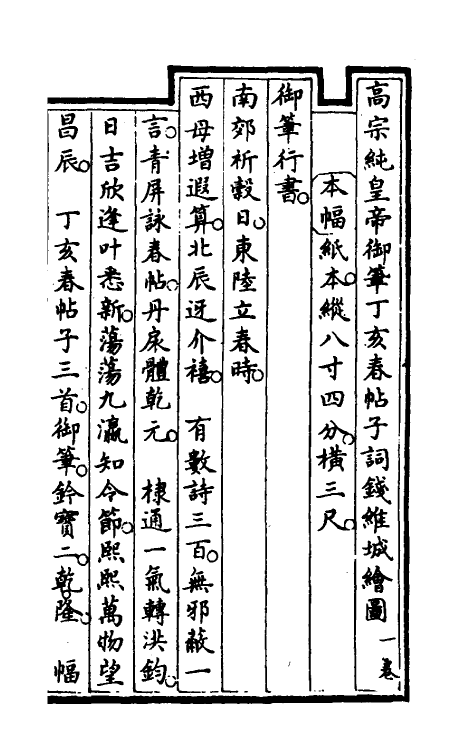 高宗純皇帝御筆丁亥春帖子詞錢維城繪圖一卷
本幅紙。本縱八寸四分。橫三尺。
御筆行書。
南郊祈穀日。東陸立春時。
西母增遐算。北辰迓介禧。　有數詩三百。無邪蔽一
言。青屏詠春帖。丹扆體乾元。　棣通一氣轉洪鈞。
日吉欣逢叶悉新。蕩蕩九瀛知令節。熙熙萬物望
昌辰。　丁亥春帖子三首。御筆。鈐寶二。乾隆。　幅